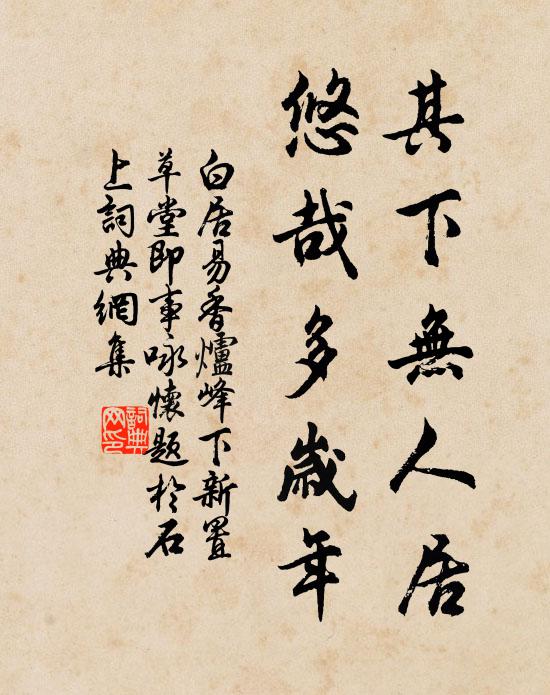 其下無人居
悠哉多歲年
白居易香爐峰下新置
草堂即事咏懷題於石
上詞典網集
詞典网印